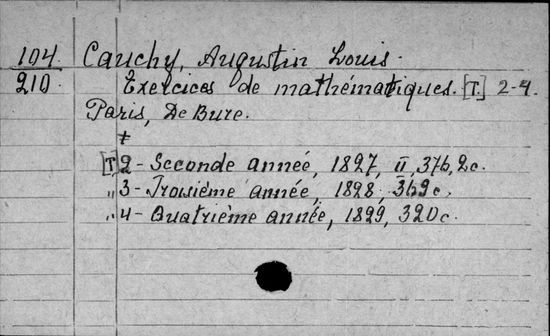 104 Cauchy, Augustin Louis.
210 Exercices de mathématiques. [T.] 2-4.
Paris, De Bure.
[T] 2 - Seconde année, 1827, II, 376, 2 c.
„ 3 - Troisième année, 1828, c.
„ 4 - Quatrième année, 1829, 320 c.